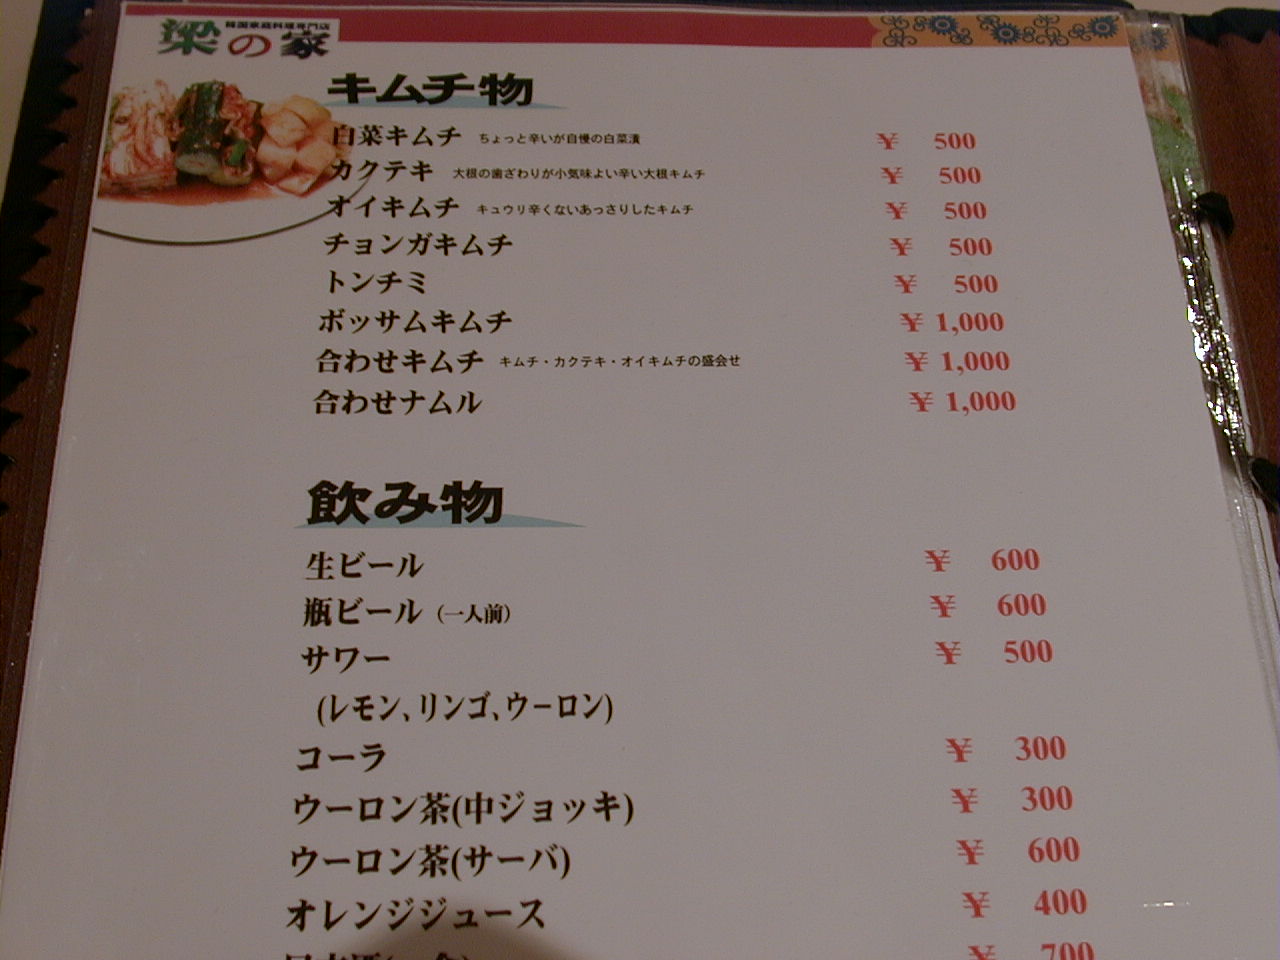 韓国家庭料理専門店
梁の家
キムチ物
白菜キムチ ちょっと辛いが自慢の白菜漬 ¥ 500
カクテキ 大根の歯ざわりが小気味よい辛い大根キムチ ¥ 500
オイキムチ キュウリ辛くないあっさりしたキムチ ¥ 500
チョンガキムチ ¥ 500
トンチミ ¥ 500
ボッサムキムチ ¥ 1,000
合わせキムチ キムチ・カクテキ・オイキムチの盛会せ ¥ 1,000
合わせナムル ¥ 1,000
飲み物
生ビール ¥ 600
瓶ビール (一人前) ¥ 600
サワー ¥ 500
(レモン、リンゴ、ウーロン)
コーラ ¥ 300
ウーロン茶(中ジョッキ) ¥ 300
ウーロン茶(サーバ) ¥ 600
オレンジジュース ¥ 400
¥ 700